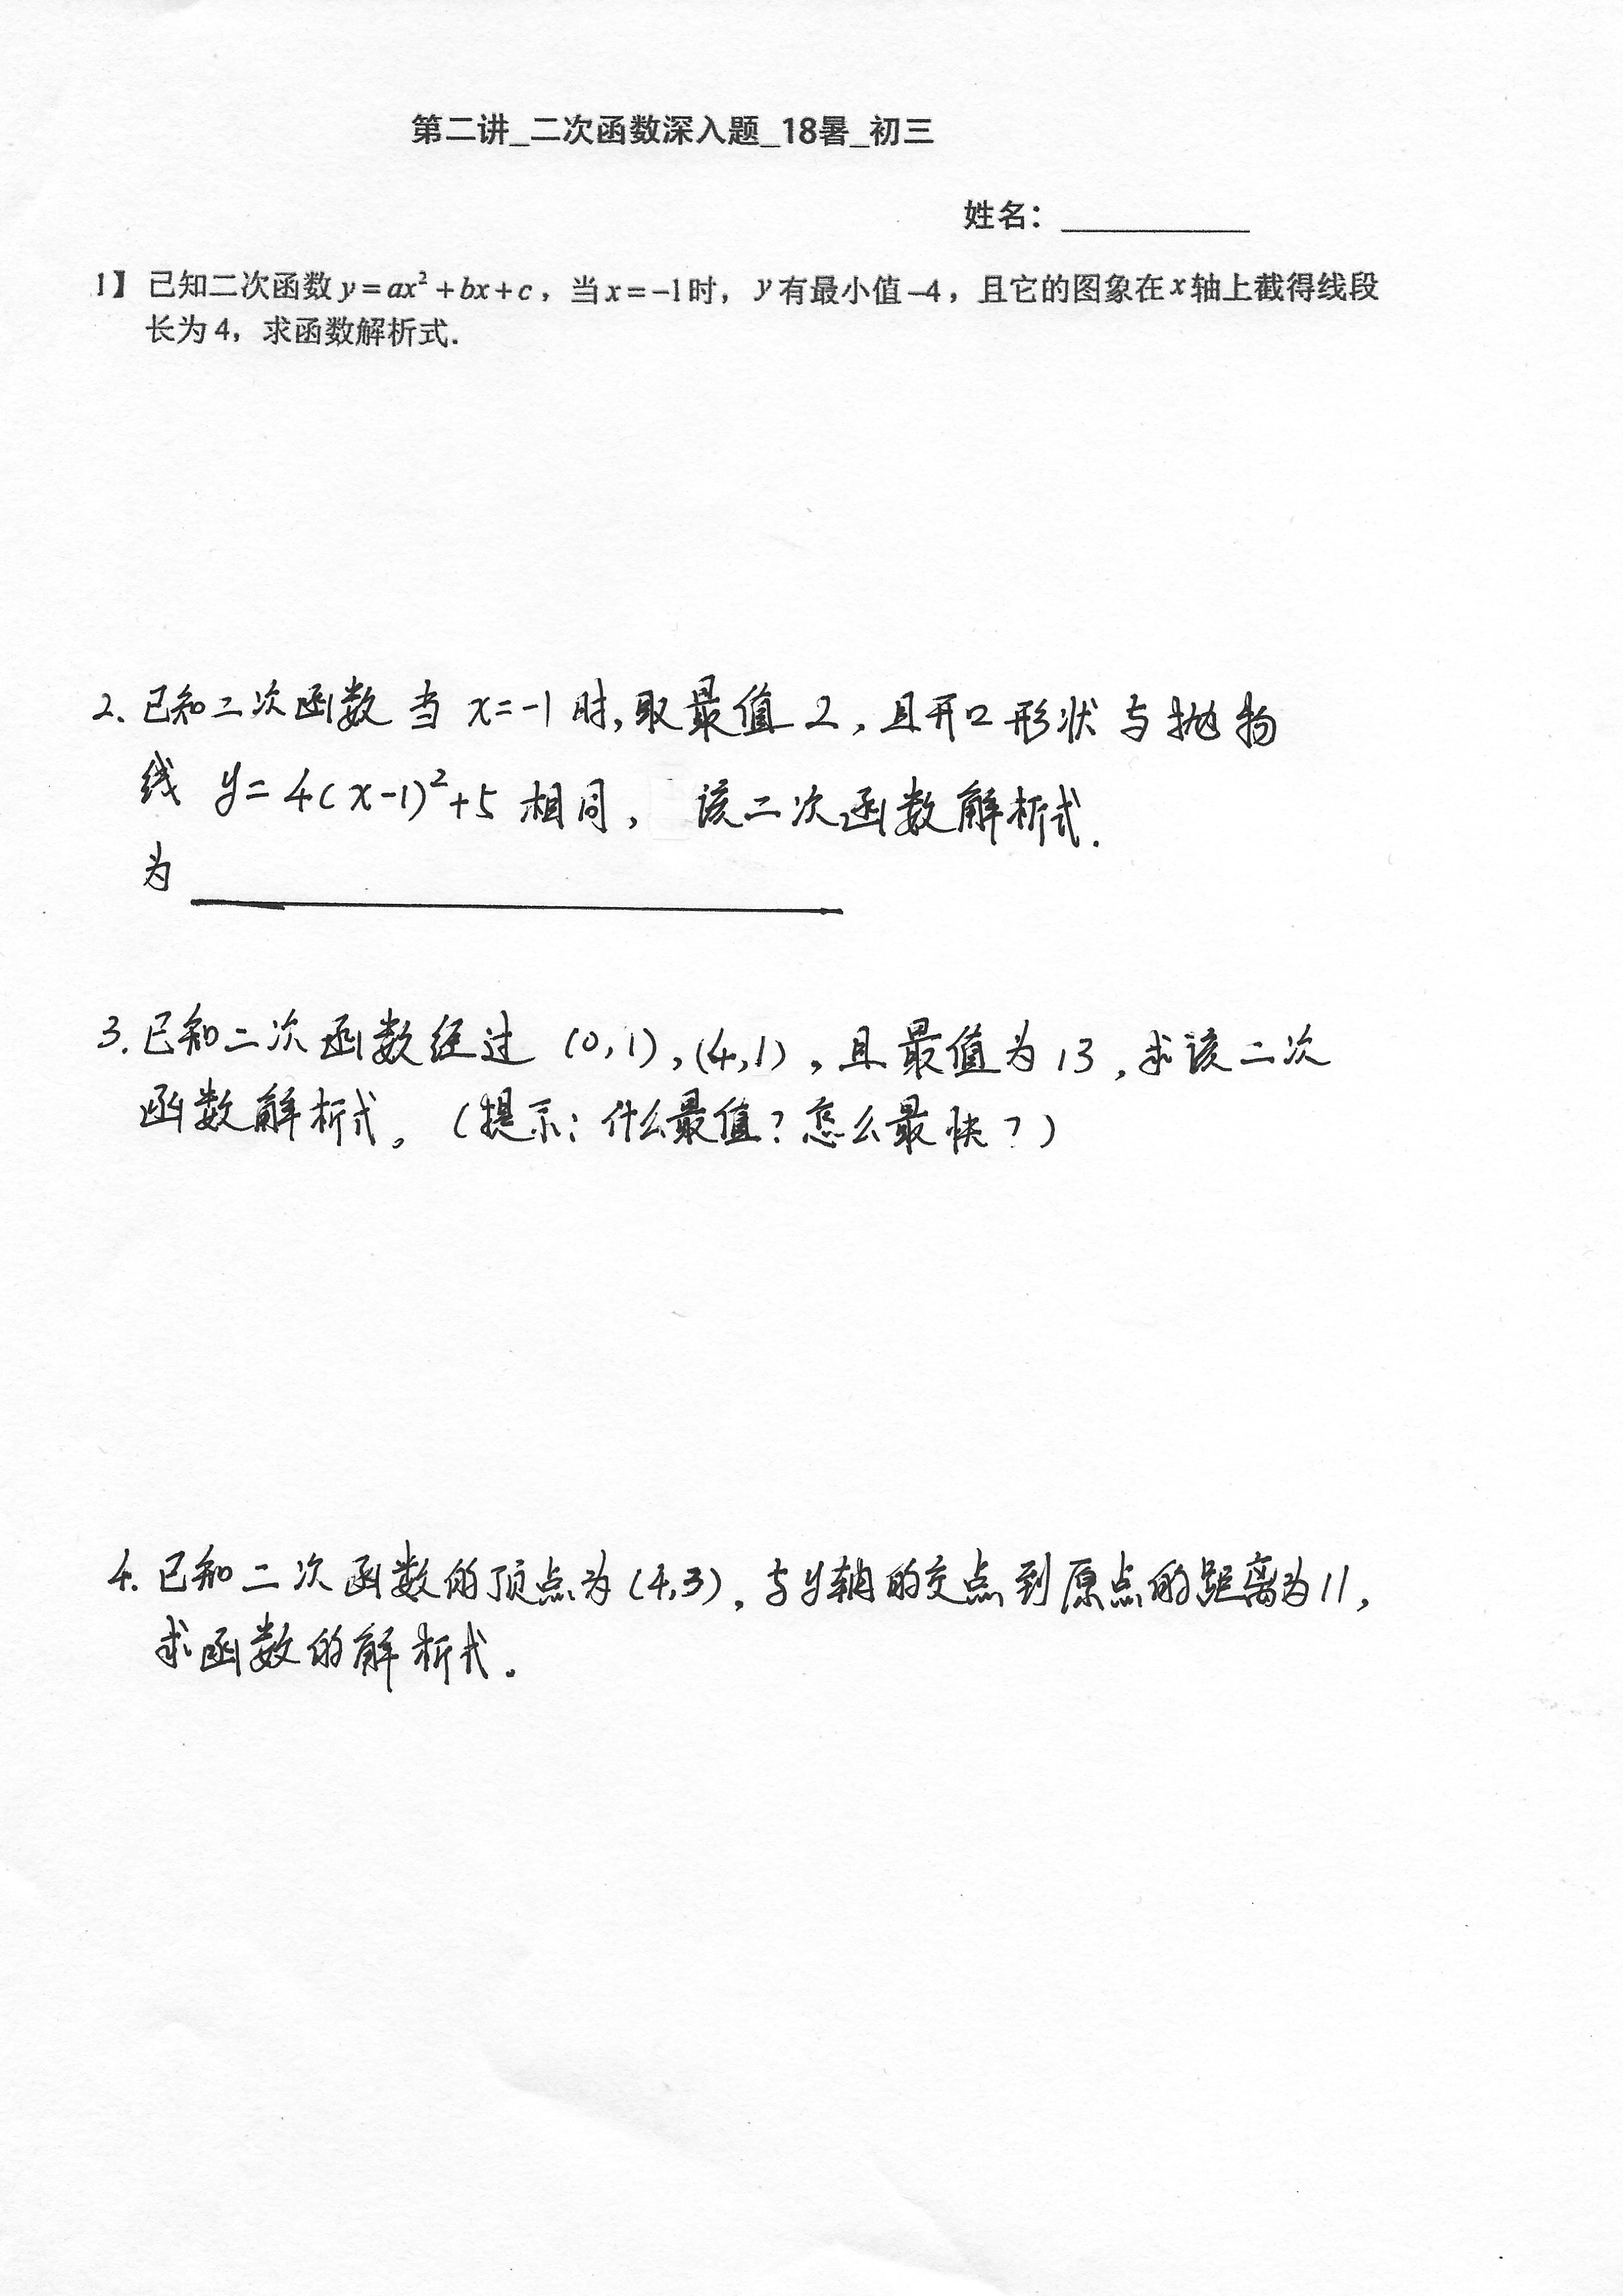 第二讲_二次函数深入题_18暑_初三
姓名：
1】 已知二次函数 y=ax²+bx+c，当 x=-1时，y有最小值-4，且它的图象在x轴上截得线段
长为 4，求函数解析式.
2. 已知二次函数 当 x=-1 时，取最值 2，且开口形状与抛物
线 y=4(x-1)²+5 相同， 该二次函数解析式.
为
3. 已知二次函数经过 (0,1),(4,1)，且最值为 13，求该二次
函数解析式。（提示：什么最值？怎么最快？）
4. 已知二次函数的顶点为(4,3)，与y轴的交点到原点的距离为11，
求函数的解析式。